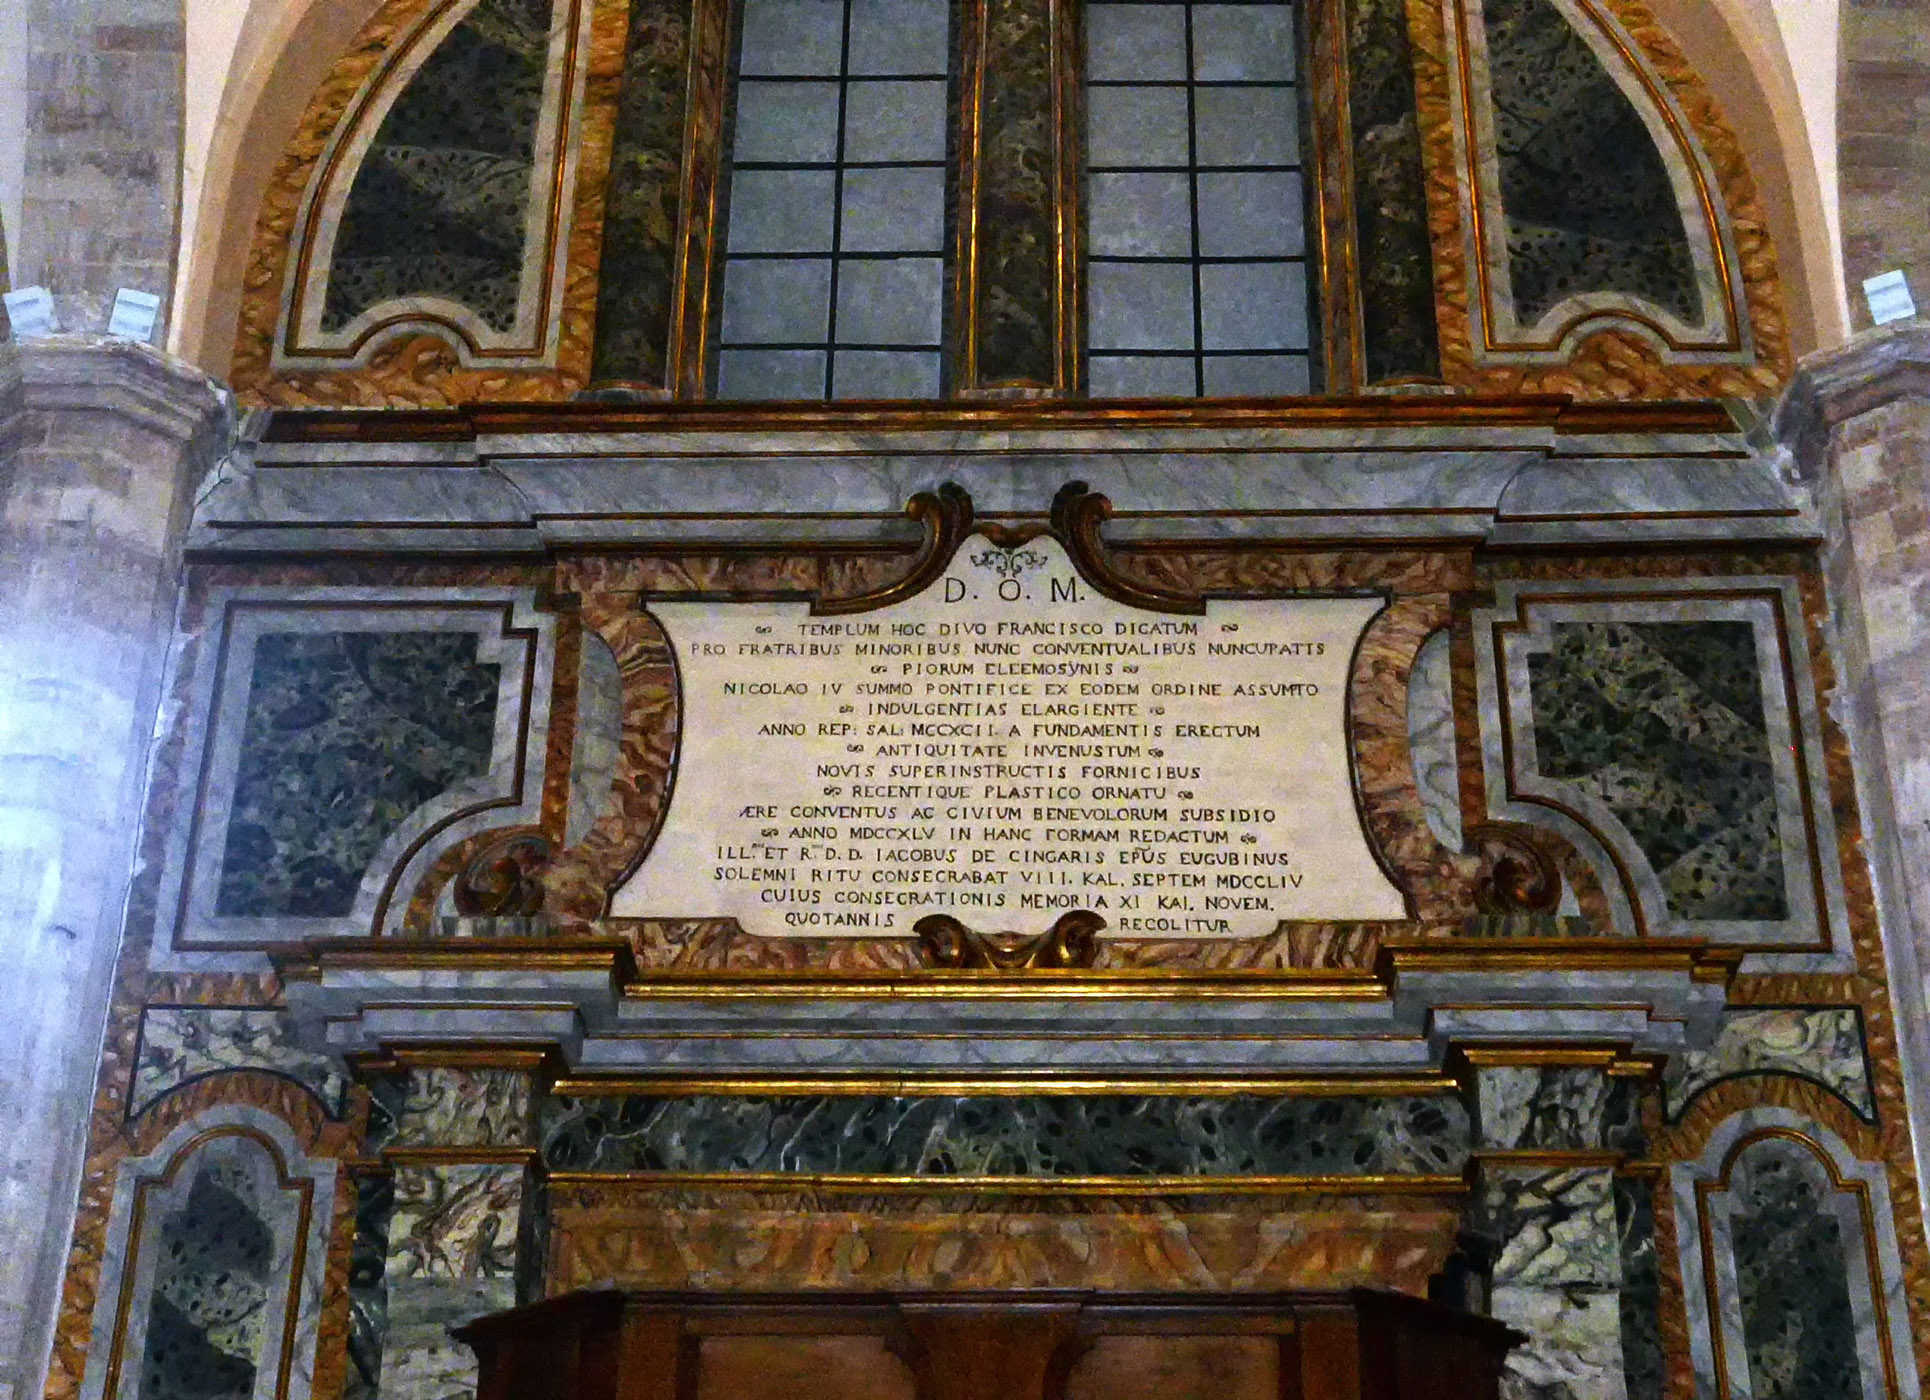 D. O. M.
TEMPLUM HOC DIVO FRANCISCO DICATUM
PRO FRATRIBUS MINORIBUS NUNC CONVENTUALIBUS NUNCUPATIS
PIORUM ELEEMOSYNIS
NICOLAO IV SUMMO PONTIFICE EX EODEM ORDINE ASSUMTO
INDULGENTIAS ELARGIENTE
ANNO REP: SAL: MCCXCII. A FUNDAMENTIS ERECTUM
ANTIQUITATE INVENUSTUM
NOVIS SUPERINSTRUCTIS FORNICIBUS
RECENTIQUE PLASTICO ORNATU
ÆRE CONVENTUS AC CIVIUM BENEVOLORUM SUBSIDIO
ANNO MDCCXLV IN HANC FORMAM REDACTUM
ILL.ᵐᵘˢ ET R.ᵐᵘˢ D. D. IACOBUS DE CINGARIS EPŨS EUGUBINUS
SOLEMNI RITU CONSECRABAT VIII. KAL. SEPTEM MDCCLIV
CUIUS CONSECRATIONIS MEMORIA XI KAL. NOVEM.
QUOTANNIS RECOLITUR